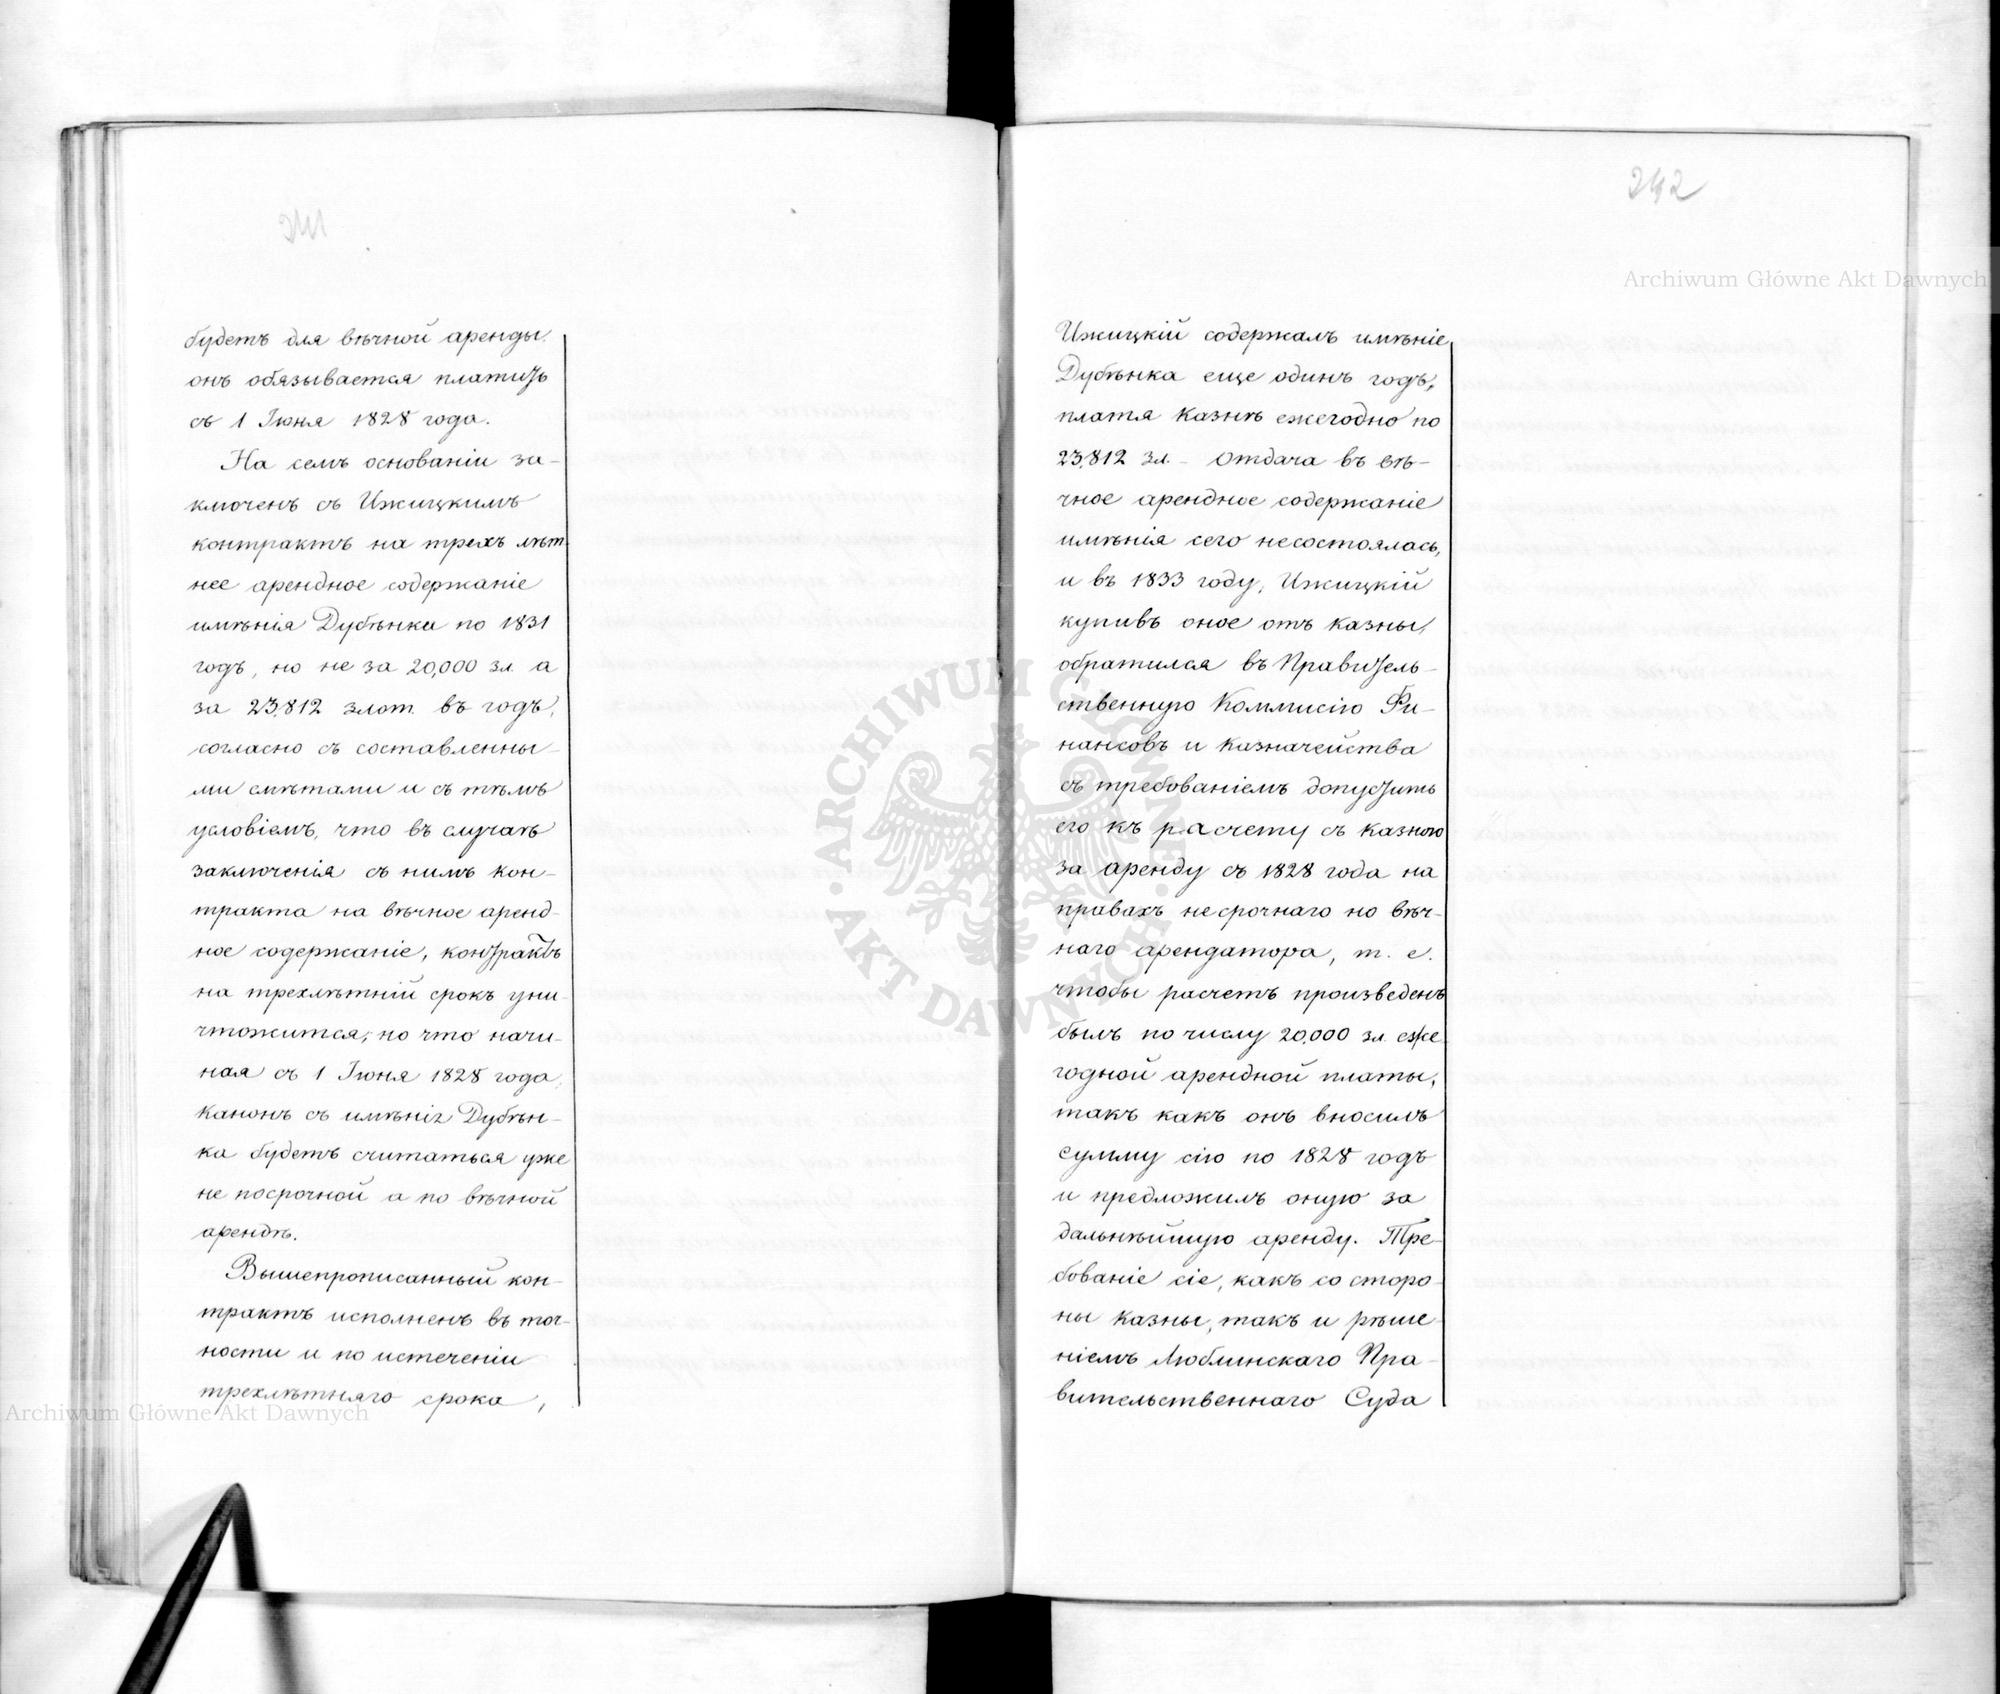 будетъ для вѣчной аренды.
онъ обязывается платить
съ 1 Іюня 1828 года.
На семъ основаніи за-
ключенъ съ Ижицкимъ
контрактъ на трехъ лѣт-
нее арендное содержаніе
имѣнія Дубѣнка по 1831
годъ, но не за 20,000 зл. а
за 23,812 злот. въ годъ,
согласно съ составленны-
ми смѣтами и съ тѣмъ
условіемъ, что въ случаѣ
заключенія съ нимъ кон-
тракта на вѣчное аренд-
ное содержаніе, контрактъ
на трехлѣтній срокъ уни-
чтожится, но что начи-
ная съ 1 Іюня 1828 года,
канонъ съ имѣнія Дубѣн-
ка будетъ считаться уже
не посрочной а по вѣчной
арендѣ.
Вышепрописанный кон-
трактъ исполненъ въ точ-
ности и по истеченіи
трехлѣтняго срока,
242
Ижицкій содержалъ имѣніе
Дубѣнка еще одинъ годъ,
платя казнѣ ежегодно по
23,812 зл. – Отдача въ вѣ-
чное арендное содержаніе
имѣнія сего несостоялась,
и въ 1833 году, Ижицкій
купивъ оное отъ казны,
обратился въ Правитель-
ственную Коммисію Фи-
нансовъ и Казначейства
съ требованіемъ допустить
его къ расчету съ казною
за аренду съ 1828 года на
правахъ не срочнаго но вѣч-
наго арендатора, т. е.
чтобы расчетъ произведенъ
былъ по числу 20,000 зл. еже-
годной арендной платы,
такъ какъ онъ вносилъ
сумму сію по 1828 годъ
и предложилъ оную за
дальнѣйшую аренду. Тре-
бованіе сіе, какъ со сторо-
ны казны, такъ и рѣше-
ніемъ Люблинскаго Пра-
вительственнаго Суда
Archiwum Główne Akt Dawnych
Archiwum Główne Akt Dawnych
ARCHIWUM GŁÓWNE AKT DAWNYCH